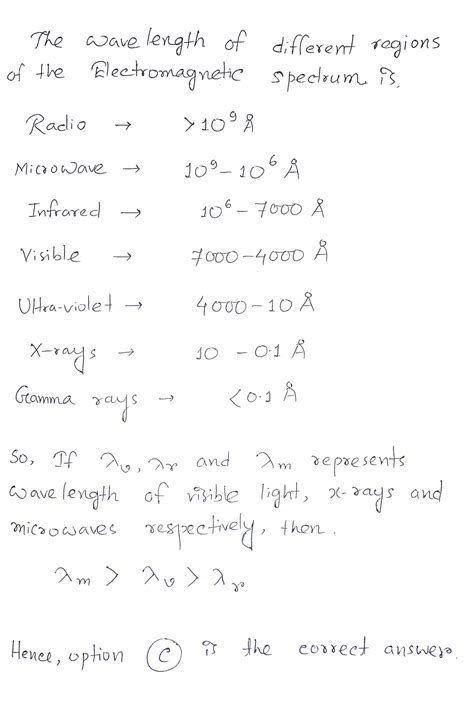 The wavelength of different regions
of the Electromagnetic spectrum is.
Radio → >10⁹ Å
Microwave → 10⁹-10⁶ Å
Infrared → 10⁶-7000 Å
Visible → 7000-4000 Å
Ultra-violet → 4000-10 Å
X-rays → 10 - 0.1 Å
Gamma rays → <0.1 Å
So, If λv, λr and λm represents
wavelength of visible light, x-rays and
microwaves respectively, then.
λm > λv > λr
Hence, option (C) is the correct answer.